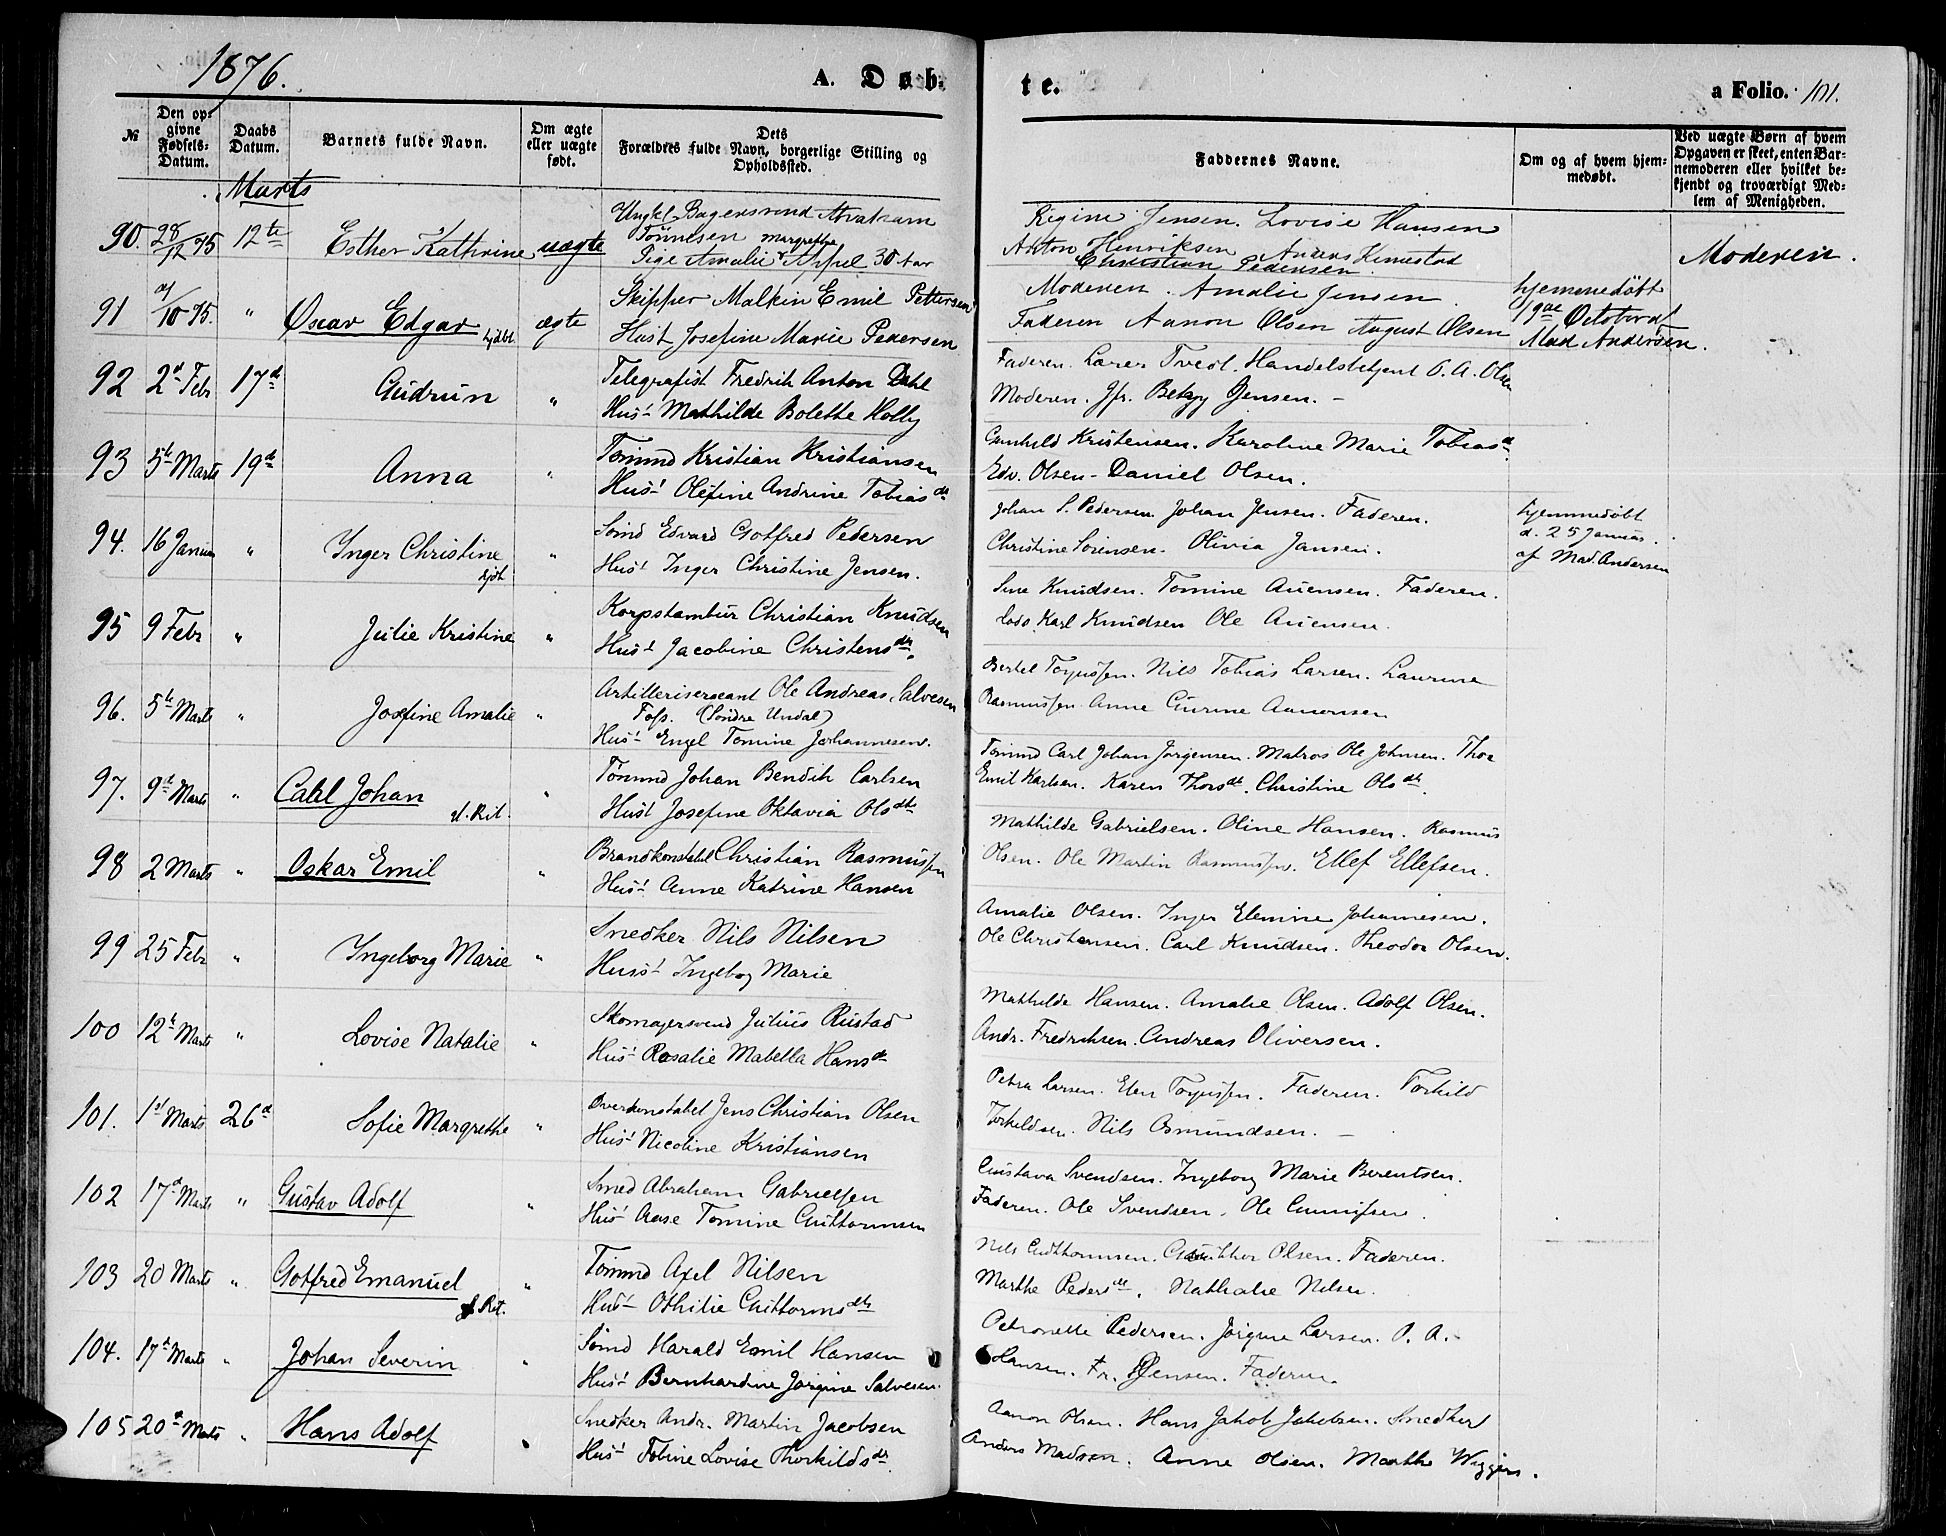 1876.
A. Døb-
te.
a Folio. 101.
№
Den opgivne Fødsels-Datum.
Daabs Datum.
Barnets fulde Navn.
Om ægte eller uægte født.
Dets Forældres fulde Navn, borgerlige Stilling og Opholdssted.
Faddernes Navne.
Om og af hvem hjemmedøbt.
Ved uægte Børn af hvem Opgaven er skeet, enten Barnemoderen eller hvilket bekjendt og troværdigt Medlem af Menigheden.
Marts
90. 28/12 75 12te Esther Kathrine uægte
Ungkl. Bagersvend Abraham
Tönnesen
Pige Amalie Margrethe Appel 30 Aar
Regine Jensen. Lovise Hansen
Anton Henriksen Anders Kimestad
Christian Pedersen
Moderen.
91 /10 75. " Oscar Edgar hjdbt. ægte
Skipper Malkin Emil Pettersen
Hust Josefine Marie Pedersen
Moderen. Amalie Jensen.
Faderen Aanon Olsen August Olsen
hjemmedöbt
19de October af
Mad Andersen.
92 2d Febr 17d Gudrun "
Telegrafist Fredrik Anton Dahl
Hust Mathilde Bolette Holby
Faderen. Lærer Tvedt. Handelsbetjent O. A. Olsen
Moderen. Jfr. Betzy Jensen. –
93 5te Marts 19d Anna "
Tömmd Kristian Kristiansen
Hust Olefine Andrine Tobiasdr
Gunhild Kristensen. Karoline Marie Tobiasdr.
Edv. Olsen – Daniel Olsen.
94. 16 Januar " Inger Christine hjdt "
Sömd Edvard Gotfred Pedersen
Hust Inger Christine Jensen.
Johan S. Pedersen Johan Jensen. Faderen.
Christine Sörensen. Olivia Jansen.
hjemmedöbt
d. 25 Januar.
af Mad. Andersen
95 9 Febr " Julie Kristine "
Korpstambur Christian Knudsen
Hust Jacobine Christensdtr.
Sine Knudsen. Tomine Auensen. Faderen.
Karl Knudsen Ole Auensen.
96. 5te Marts " Josefine Amalie "
Artillerisergeant Ole Andreas Salvesen
Foss. (Söndre Undal)
Hust Engel Tomine Johannesen.
Bertel Torjussen. Nils Tobias Larsen. Laurine
Rasmussen Anne Gurine Aanonsen
97. 9d Marts " Carl Johan d. Rit. "
Tömmd Johan Bendik Carlsen
Hust Josefine Oktavia Olsdtr
Tömmd Carl Johan Jörgensen. Matros Ole Johnsen. Thor
Emil Karlsen. Karen Thorsdt. Christine Olsdt.
98 2 Marts " Oskar Emil "
Brandkonstabel Christian Rasmussen
Hust Anne Katrine Hansen
Mathilde Gabrielsen. Oline Hansen. Rasmus
Olsen. Ole Martin Rasmussen. Ellef Ellefsen.
99 25 Febr " Ingeborg Marie "
Snedker Nils Nilsen
Hust Ingebog Marie
Amalie Olsen. Inger Elenine Johannesen.
Ole Christensen. Carl Knudsen. Theodor Olsen.
100 12te Marts " Lovise Natalie "
Skomagersvend Julius Rustad
Hust Rosalie Mabella Hansdr
Mathilde Hansen. Amalie Olsen. Adolf Olsen.
Andr. Fredriksen. Andreas Oliversen.
101. 1st Marts 26d Sofie Margrethe "
Overkonstabel Jens Christian Olsen
Hust Nicoline Kristiansen
Petra Larsen. Elen Torjussen. Faderen. Torkild
Torkildsen. Nils Osmundsen. –
102 17d Marts " Gustav Adolf "
Smed Abraham Gabrielsen
Hust Aase Tomine Guttormsen
Gustava Svendsen. Ingeborg Marie Berentsen.
Faderen. Ole Svendsen. Ole Gunnufsen.
103 20 Marts " Gotfred Emanuel d. Rit. "
Tömmd Axel Nilsen
Hust Othilie Guttormsdtr
Nils Guthormsen. Olsen. Faderen.
Marthe Pedersdt. Nathalie Nilsen.
104. 17d Marts " Johan Severin "
Sömd Harald Emil Hansen
Hust Bernhardine Jörgine Salvesen.
Petronelle Pedersen. Jörgine Larsen. P. A.
Hansen. Fr. Jensen. Faderen.
105 20d Marts " Hans Adolf "
Snedker Andr. Martin Jacobsen
Hust Tobine Lovise Thorkildsdr
Aanon Olsen. Hans Jakob Jakobsen. Snedker
Anders Madsen. Anne Olsen. Marthe Wiggers.